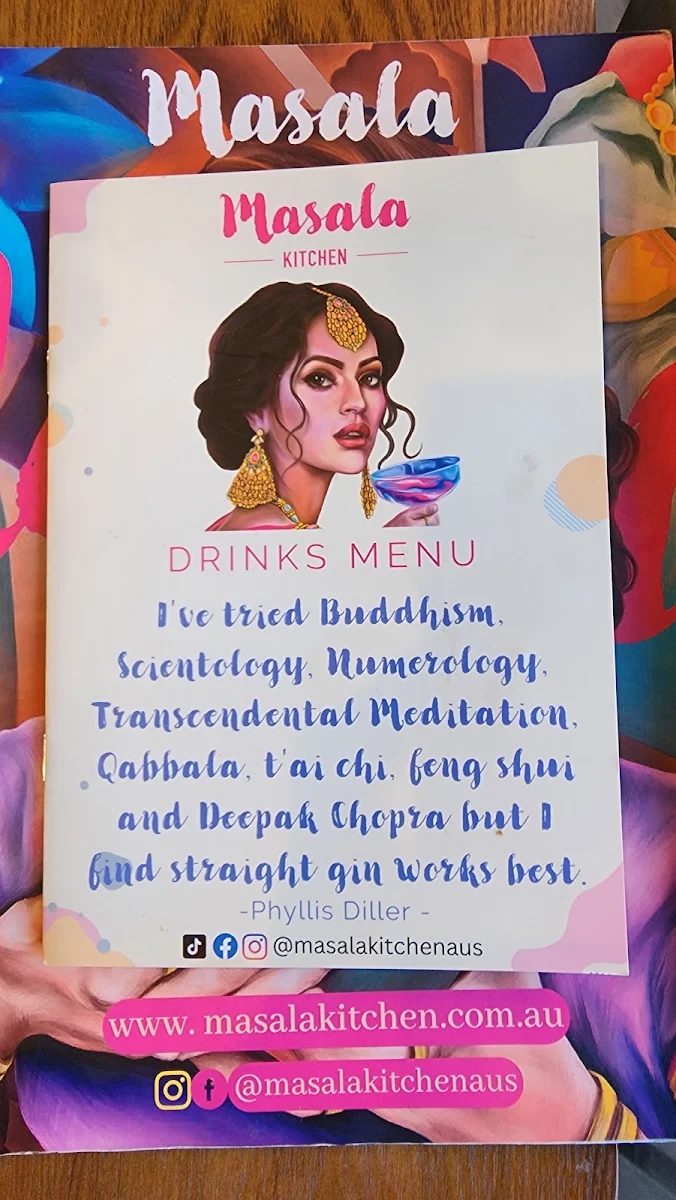 Masala
Masala
KITCHEN
DRINKS MENU
I've tried Buddhism,
Scientology, Numerology,
Transcendental Meditation,
Qabbala, t'ai chi, feng shui
and Deepak Chopra but I
find straight gin works best.
-Phyllis Diller -
@masalakitchenaus
www. masalakitchen.com.au
@masalakitchenaus